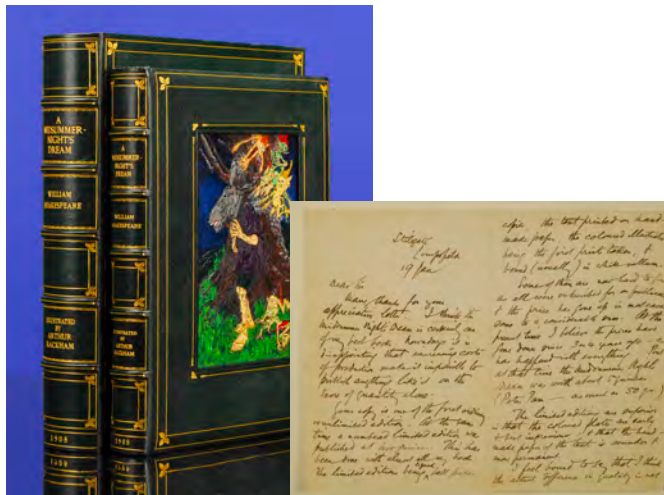 A
MIDSUMMER-
NIGHT'S
DREAM
WILLIAM
SHAKESPEARE
ILLUSTRATED
BY
ARTHUR
RACKHAM
1908
A
MIDSUMMER-
NIGHT'S
DREAM
WILLIAM
SHAKESPEARE
ILLUSTRATED
BY
ARTHUR
RACKHAM
1908
Stilegate
Limpsfield
19 Jan
Dear Sir
Many thanks for your
appreciative letter. I think the
Midsummer Night's Dream is certainly one
of my best books. Nowadays it is
disappointing that increasing costs
of production make it impossible to
publish anything like it on the
score of quantity alone.
Your copy is one of the first ordinary
or unlimited edition. At the same
time a numbered limited edition was
published at
been done with almost all my books
the limited edition being
the text printed on hand
made paper, the coloured illustrations
being the first prints taken, &
bound (usually) in white vellum.
Some of them are now hard to
as all were
& the price has gone up in
some to a considerable sum. At the
present time I believe the prices have
gone down since 2 or 3 years ago as
has happened with everything.
at that time the Midsummer Night's
Dream was worth about
(Peter Pan as much as 50 gns.)
The limited editions are superior
in that the coloured plates are early
& best impressions & that the hand-
made paper of the text is sounder &
more permanent.
I feel bound to say that I think
the actual difference in quality is not